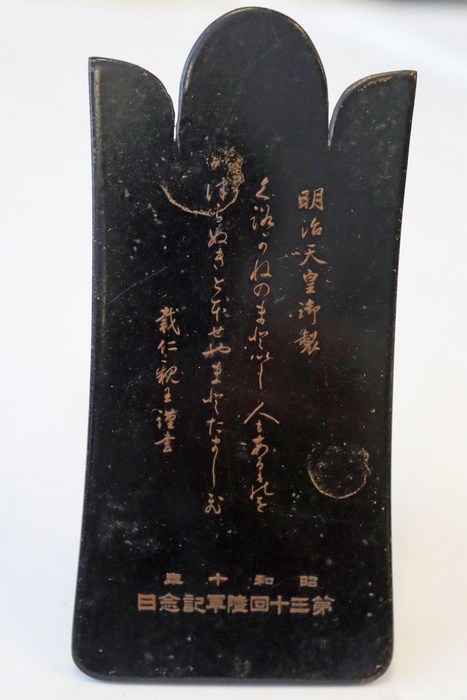 明治天皇御製
く路可ねのまと以し人もあるものを
つらぬきとほせやまとたましひ
載仁親王謹書
昭和十年
第三十回陸軍記念日